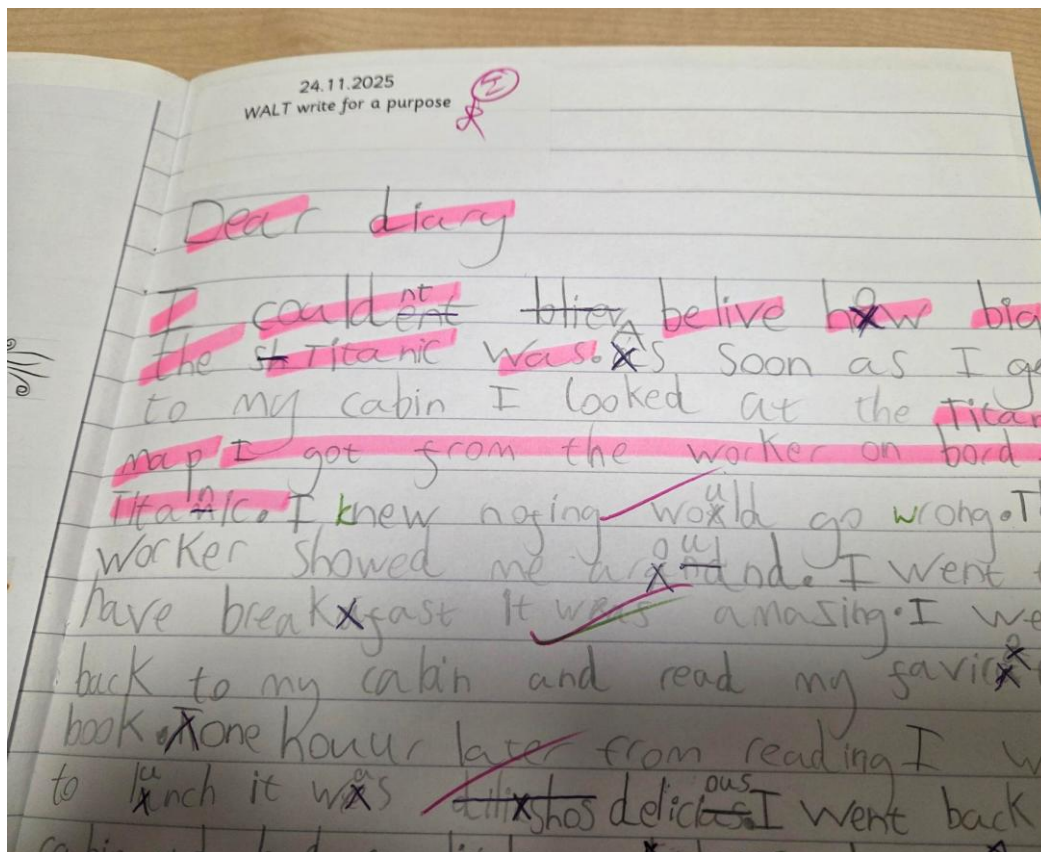 24.11.2025
WALT write for a purpose
I
Dear diary
I couldnt belive how big
the Titanic was. As soon as I
to my cabin I looked at the
map I got from the worker on bord
Titanic. I knew nofing would go wrong.
worker showed me around. I went
have breakfast it was amazing. I
back to my cabin and read my
book. one houur later from reading I
to lunch it was delicious. I went back